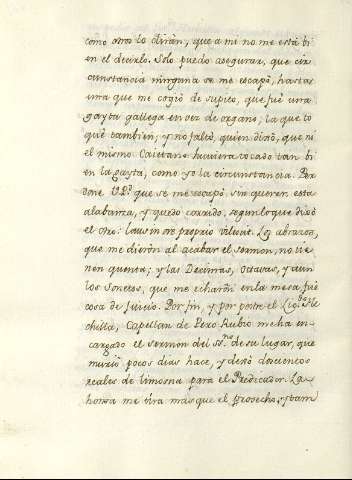 como otros lo diràn, que a mi no me està bi
en el decirlo. Solo puedo asegurar, que cir
cunstancia ninguna se me escapò, hasta
una que me cogiò de supito, que fuè una
gayta gallega en vez de organo; la que to
què tambien; y no faltò, quien dixò, que ni
el mismo Caietano huviera tocado tan bi
en la gayta, como yo la circunstancia. Per
done Vd. que se me escapò sin querer esta
alabanza, y quedo corrido, segun lo que dixò
el otro: laus in ore proprio vilescit. Los abrazos,
que me dieròn al acabar el sermon, no tie
nen quenta; y las Decimas, Octavas, y aun
los Sonetos, que me echaròn en la mesa fuè
cosa de juicio. Por fin, y por postre el Licdo.
chilla, Capellan de Pero Rubio me ha en
cargado el sermon del SSmo. de su lugar, que
muriò pocos dias hace, y dexò doscientos
reales de limosna para el Predicador. La
honra me tira mas que el provecho, y tam